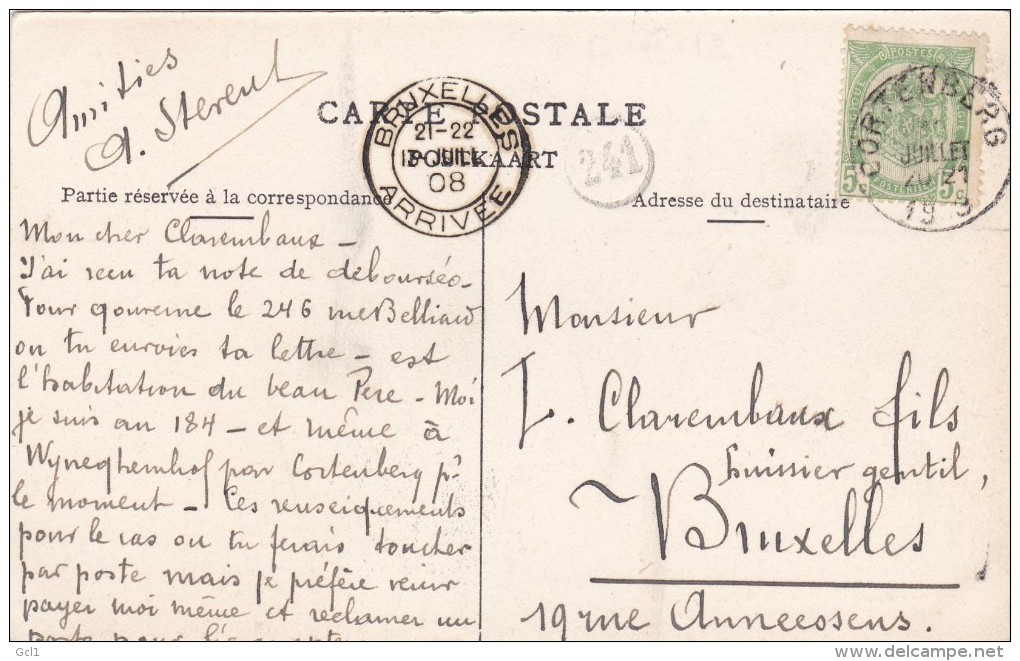 Amitiés
A. Sterent
CARTE POSTALE
POSTKAART
BRUXELLES
21-22
13 JUIL
08
ARRIVÉE
241
POSTES
CORTENBERG
JUILLET
20-21
5c POSTERIJEN 5c
Partie réservée à la correspondance
Adresse du destinataire
Mon cher Clarembaux –
J'ai reçu ta note de déboursés.
Pour gouverne le 246 rue Belliard
ou tu envoies ta lettre – est
l'habitation du beau Père – Moi
je suis au 184 – et même à
Wyneghemhof par Cortenberg pr
le moment – Ces renseignements
pour le cas ou tu ferais toucher
par poste mais je préfère venir
payer moi même et réclamer un
pour
Monsieur
Clarembaux fils
huissier gentil,
Bruxelles
19 rue Anneessens.
Gcl1
delcampe.net